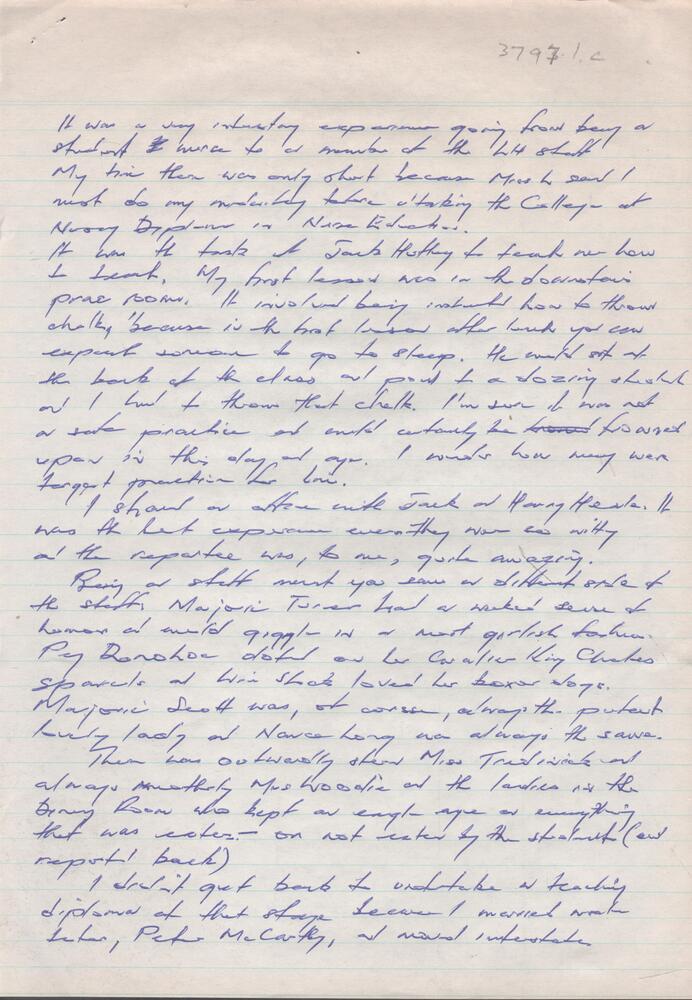 3797.1.c
It was a very interesting experience going from being a
student nurse to a member of the LH staff
My time there was only short because Miss L said I
must do my midwifery before u'taking the College of
Nursing Diploma in Nurse Education.
It was the task of Jack Hottley to teach me how
to teach. My first lesson was in the downstairs
prac rooms. It involved being instructed how to throw
chalk, 'because in the first lesson after lunch you can
expect someone to go to sleep. He would sit at
the back of the class and point to a dozing student
and I had to throw that chalk. I'm sure it was not
a safe practice and would certainly be frowned
upon in this day and age. I wonder how many were
target practice for him.
I shared an office with Jack and Harry. It
was the best experience ever. They were so witty
and the repartee was, to me, quite amazing.
Being a staff meant you saw a different side to
the staff. Marjorie Turner had a wicked sense of
humour and would giggle in a most girlish fashion.
Peg Donohoe doted on her Cavalier King Charles
spaniels and loved her boxer dogs.
Marjorie Scott was, of course, always the
lovely lady and Nance Long was always the same.
There was outwardly stern Miss and
always motherly Mrs Woodie and the ladies in the
Dining Room who kept an eagle eye on everything
that was eaten – or not eaten by the students (and
report' back)
I didn't get back to undertake a teaching
diploma at that stage because I married
, Peter McCarthy, and moved interstate